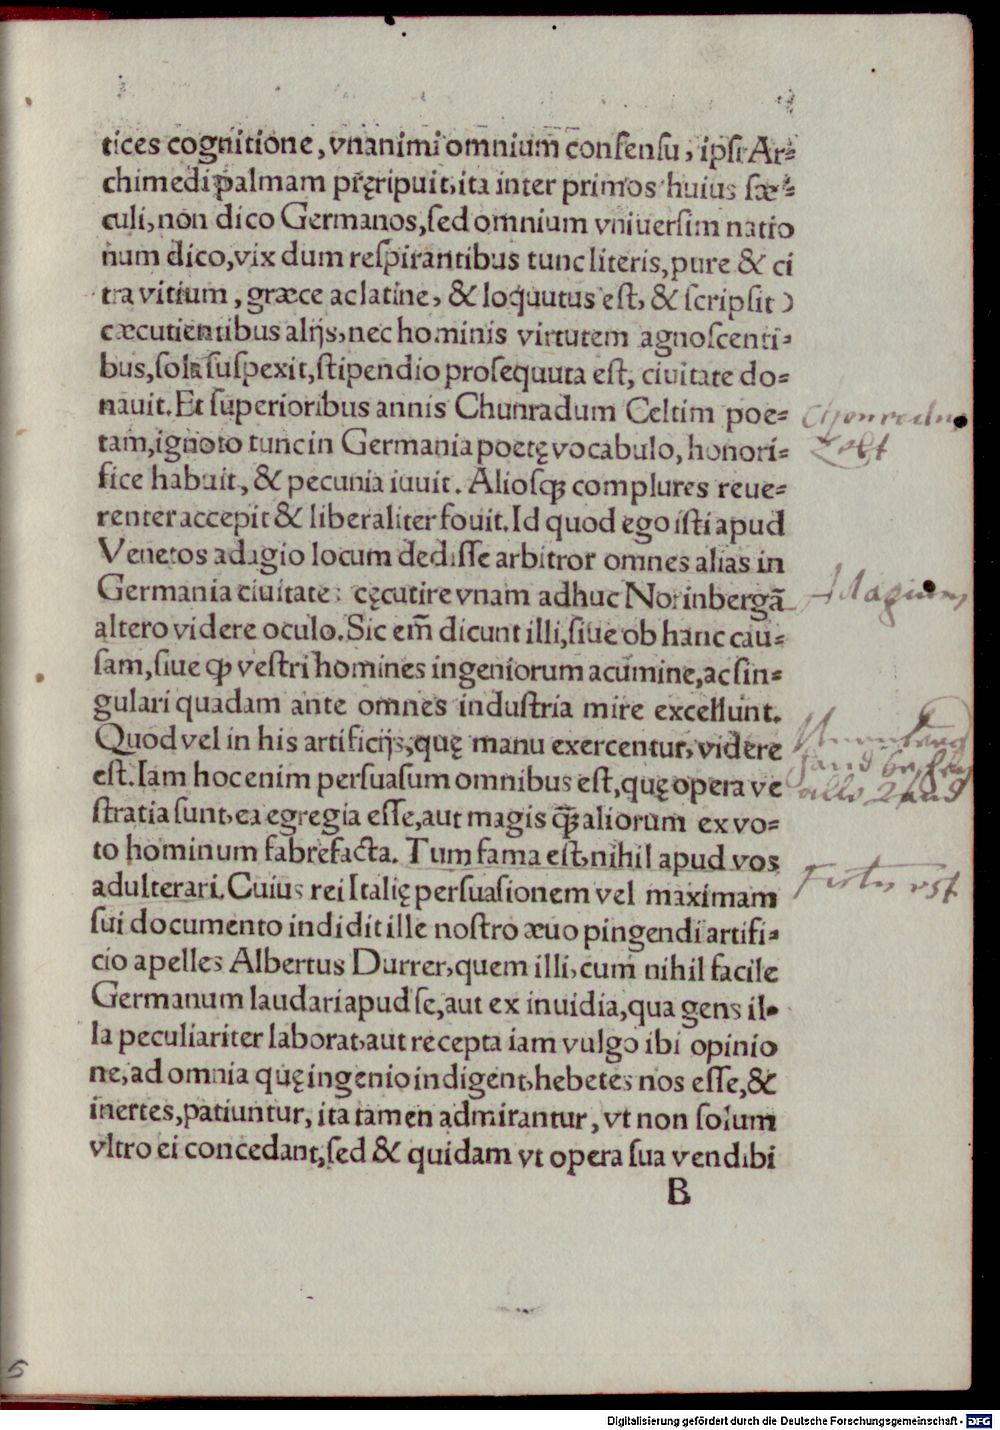 tices cognitione, vnanimi omnium consensu, ipsi Ar-
chimedi palmam pręripuit, ita inter primos huius sæ-
culi, non dico Germanos, sed omnium vniuersim natio
num dico, vix dum respirantibus tunc literis, pure & ci
tra vitium, græce ac latine, & loquutus est, & scripsit)
cæcutientibus alijs, nec hominis virtutem agnoscenti-
bus, sola suspexit, stipendio prosequuta est, ciuitate do-
nauit. Et superioribus annis Chunradum Celtim poe-
tam, ignoto tunc in Germania poetę vocabulo, honori-
fice habuit, & pecunia iuuit. Aliosq; complures reue-
renter accepit & liberaliter fouit. Id quod ego isti apud
Venetos adagio locum dedisse arbitror omnes alias in
Germania ciuitate: cęcutire vnam adhuc Norinbergã
altero videre oculo. Sic em̃ dicunt illi, siue ob hanc cau-
sam, siue ꝙ vestri homines ingeniorum acumine, ac sin-
gulari quadam ante omnes industria mire excellunt.
Quod vel in his artificijs, quę manu exercentur, videre
est. Iam hoc enim persuasum omnibus est, quę opera ve
stratia sunt, ea egregia esse, aut magis q̃ aliorum ex vo-
to hominum fabrefacta. Tum fama est, nihil apud vos
adulterari. Cuius rei Italię persuasionem vel maximam
sui documento indidit ille nostro æuo pingendi artifi-
cio apelles Albertus Durrer, quem illi, cum nihil facile
Germanum laudari apud se, aut ex inuidia, qua gens il-
la peculiariter laborat, aut recepta iam vulgo ibi opinio
ne, ad omnia quę ingenio indigent, hebetes nos esse, &
inertes, patiuntur, ita tamen admirantur, vt non solum
vltro ei concedant, sed & quidam vt opera sua vendibi
B
Chonradus
Celt
Adagium
Nurnberg
hand
alle Land
5
Digitalisierung gefördert durch die Deutsche Forschungsgemeinschaft - DFG